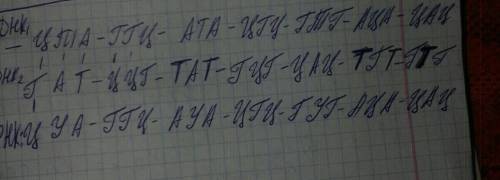 ДНК₁ – ЦТА – ГГЦ – АТА – ЦГЦ – ГТГ – АЦА – ЦАЦ
ДНК₂ ГАТ – ЦЦГ – ТАТ – ГЦГ – ЦАЦ – ТГТ – ГТГ
РНК: ЦУА – ГГЦ – АУА – ЦГЦ – ГУГ – АЦА – ЦАЦ